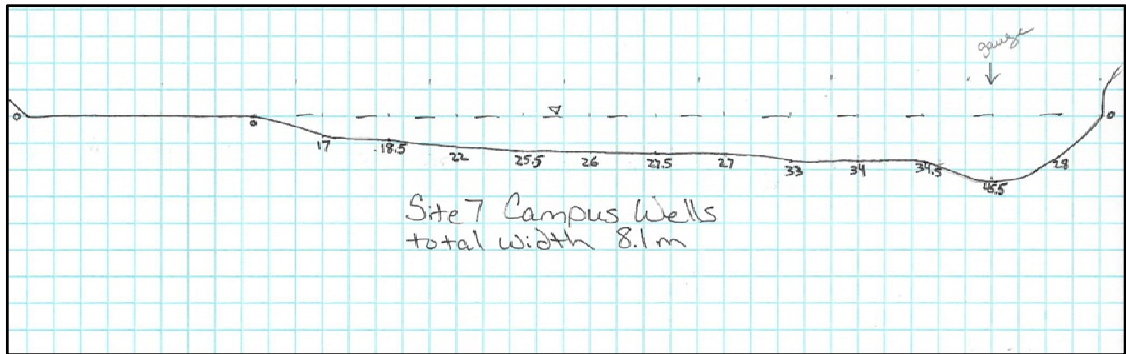 gauge
0 0 0
17 18.5 22 25.5 26 27.5 27 33 34 34.5 45.5 28
Site 7 Campus Wells
total width 8.1m